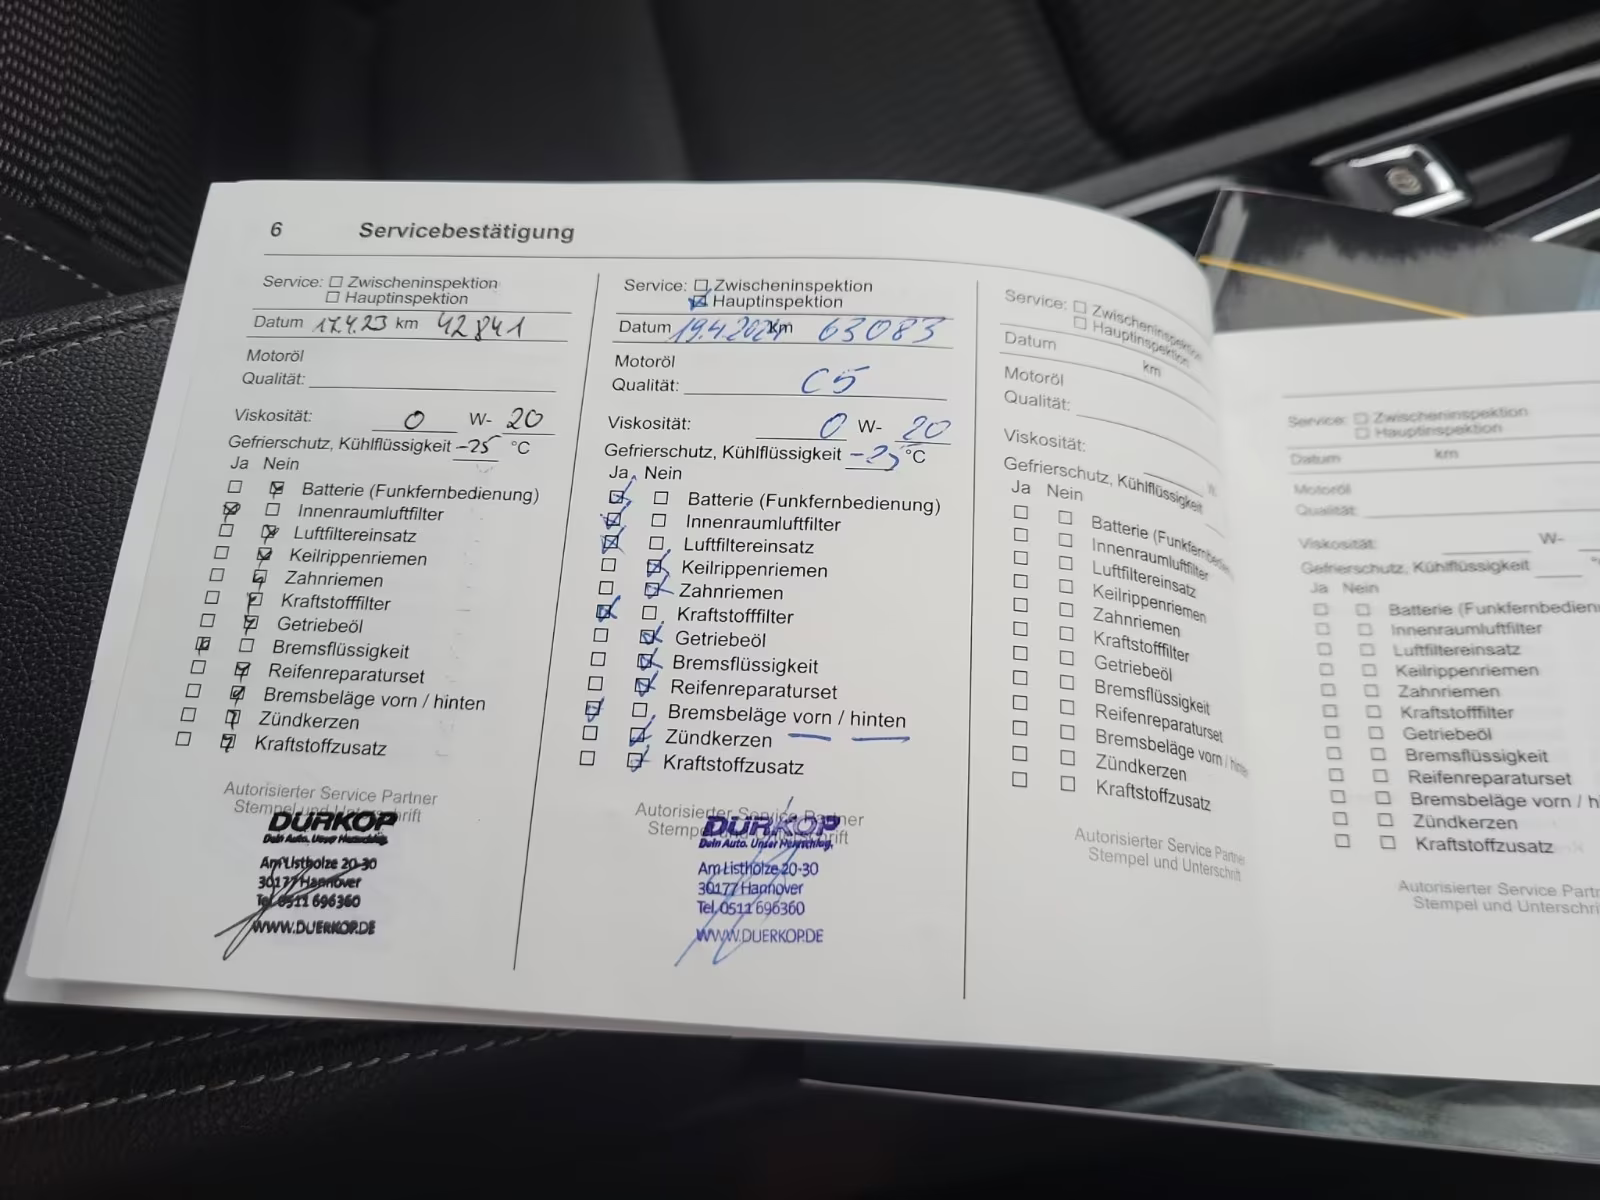 6 Servicebestätigung
Service: ☐ Zwischeninspektion
☐ Hauptinspektion
Datum 17.4.23 km 42841
Motoröl
Qualität:
Viskosität: 0 W- 20
Gefrierschutz, Kühlflüssigkeit -25 °C
Ja Nein
☐ ☒ Batterie (Funkfernbedienung)
☒ ☐ Innenraumluftfilter
☐ ☒ Luftfiltereinsatz
☐ ☒ Keilrippenriemen
☐ ☒ Zahnriemen
☐ ☒ Kraftstofffilter
☐ ☒ Getriebeöl
☒ ☐ Bremsflüssigkeit
☐ ☒ Reifenreparaturset
☐ ☒ Bremsbeläge vorn / hinten
☐ ☒ Zündkerzen
☐ ☒ Kraftstoffzusatz
Autorisierter Service Partner
Stempel und Unterschrift
DÜRKOP
Dein Auto. Unser Herzschlag.
Am Listholze 20-30
30177 Hannover
Tel. 0511 696360
WWW.DUERKOP.DE
Service: ☐ Zwischeninspektion
☒ Hauptinspektion
Datum 19.4.2024 km 63083
Motoröl
Qualität: C5
Viskosität: 0 W- 20
Gefrierschutz, Kühlflüssigkeit -25 °C
Ja Nein
☒ ☐ Batterie (Funkfernbedienung)
☒ ☐ Innenraumluftfilter
☒ ☐ Luftfiltereinsatz
☐ ☒ Keilrippenriemen
☐ ☒ Zahnriemen
☒ ☐ Kraftstofffilter
☐ ☒ Getriebeöl
☐ ☒ Bremsflüssigkeit
☐ ☒ Reifenreparaturset
☒ ☐ Bremsbeläge vorn / hinten
☐ ☒ Zündkerzen
☐ ☒ Kraftstoffzusatz
Autorisierter Service Partner
Stempel und Unterschrift
DÜRKOP
Dein Auto. Unser Herzschlag.
Am Listholze 20-30
30177 Hannover
Tel. 0511 696360
WWW.DUERKOP.DE
Service: ☐ Zwischeninspektion
☐ Hauptinspektion
Datum km
Motoröl
Qualität:
Viskosität: W-
Gefrierschutz, Kühlflüssigkeit
Ja Nein
☐ ☐ Batterie (Funkfernbedie
☐ ☐ Innenraumluftfilter
☐ ☐ Luftfiltereinsatz
☐ ☐ Keilrippenriemen
☐ ☐ Zahnriemen
☐ ☐ Kraftstofffilter
☐ ☐ Getriebeöl
☐ ☐ Bremsflüssigkeit
☐ ☐ Reifenreparaturset
☐ ☐ Bremsbeläge vorn / hinten
☐ ☐ Zündkerzen
☐ ☐ Kraftstoffzusatz
Autorisierter Service Partne
Stempel und Unterschrift
Service: ☐ Zwischeninspektion
☐ Hauptinspektion
Datum km
Motoröl
Qualität:
Viskosität: W-
Gefrierschutz, Kühlflüssigkeit °
Ja Nein
☐ ☐ Batterie (Funkfernbedien
☐ ☐ Innenraumluftfilter
☐ ☐ Luftfiltereinsatz
☐ ☐ Keilrippenriemen
☐ ☐ Zahnriemen
☐ ☐ Kraftstofffilter
☐ ☐ Getriebeöl
☐ ☐ Bremsflüssigkeit
☐ ☐ Reifenreparaturset
☐ ☐ Bremsbeläge vorn / h
☐ ☐ Zündkerzen
☐ ☐ Kraftstoffzusatz
Autorisierter Service Partn
Stempel und Unterschri